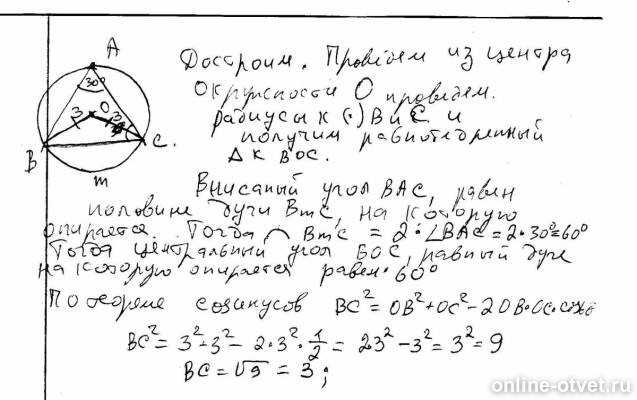 A
30°
O
3
3
B
C.
m
Достроим. Проведем из центра
окружности O проведем.
радиусы к (·) B и C и
получим равнобедренный
Δ к BOC.
Вписаный угол BAC, равен
половине дуги BmC, на которую
опирается. Тогда ◠ BmC = 2·∠BAC = 2·30°=60°
Тогда центральный угол BOC, равный дуге
на которую опирается равен 60°
По теореме косинусов BC² = OB² + OC² - 2OB·OC·cos60
BC² = 3² - 3² - 2·3²·1/2 = 2·3² - 3² = 3² = 9
BC = √9 = 3;
online-otvet.ru